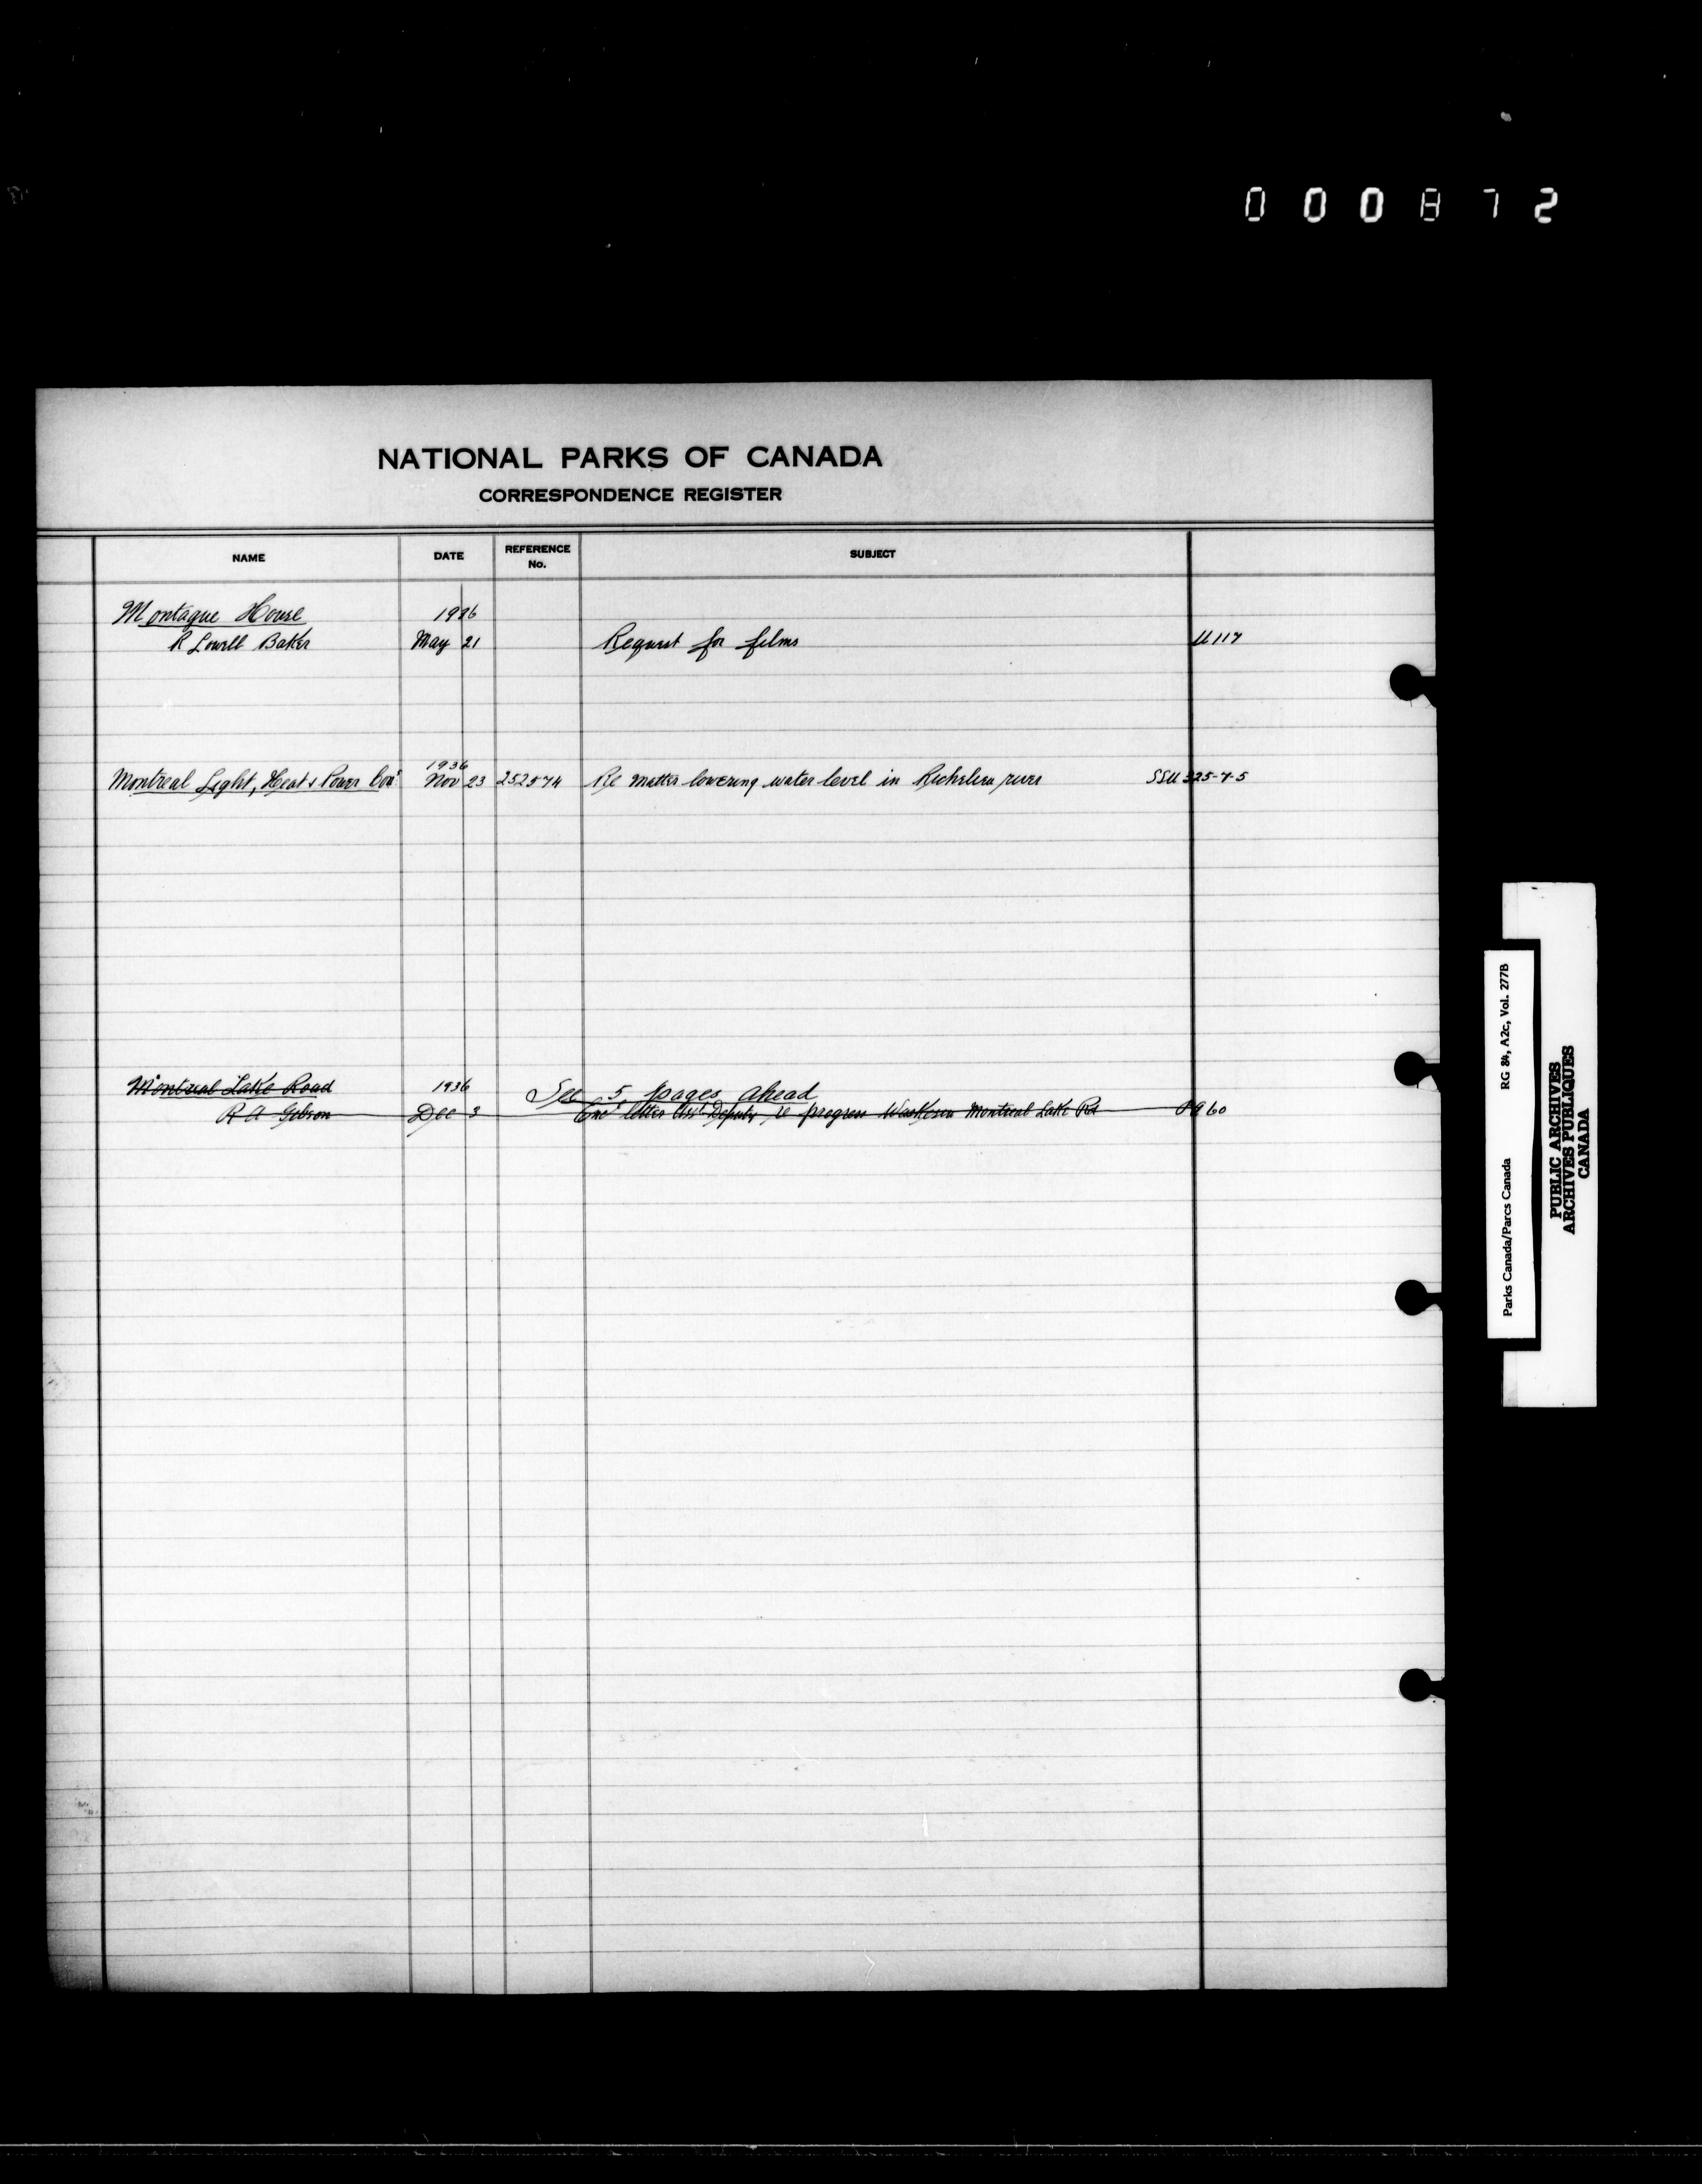 0 0 0 8 7 2
NATIONAL PARKS OF CANADA
CORRESPONDENCE REGISTER
NAME DATE REFERENCE No. SUBJECT
Montague House 1936
R Lowell Baker May 21 Request for films U117
1936
Montreal Light, Heat & Power Cons Nov 23 252574 Re matter lowering water level in Richelieu river SSU 325-7-5
Montreal Lake Road 1936 See 5 pages ahead
R A Gibson Dec 3 letter Asst Deputy re progress Waskesiu Montreal Lake Rd 60
Parks Canada/Parcs Canada RG 84, A2c, Vol. 277B
PUBLIC ARCHIVES
ARCHIVES PUBLIQUES
CANADA